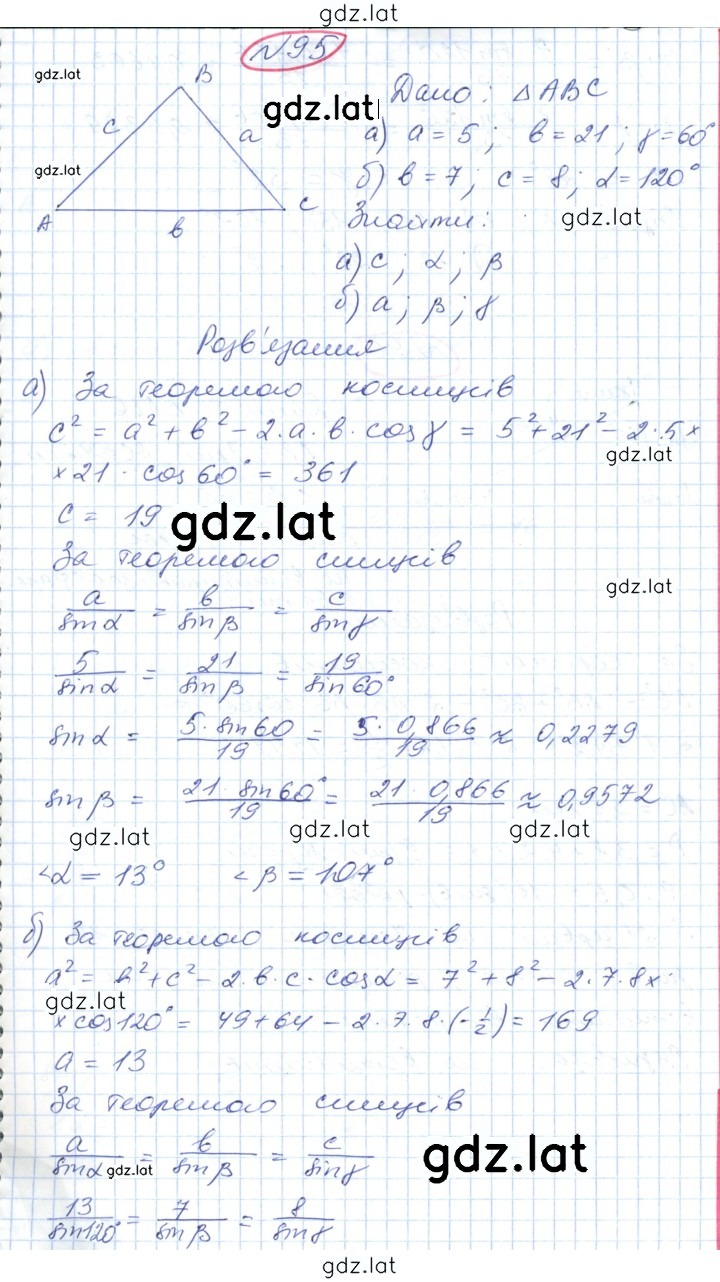 gdz.lat
№95
gdz.lat
B
gdz.lat
Дано: △ABC
c
a
а) a = 5; b = 21; γ = 60°
gdz.lat
б) b = 7; c = 8; α = 120°
A
C
Знайти:
gdz.lat
b
а) c; α; β
б) a; β; γ
Розв'язання
а) За теоремою косинусів
c² = a² + b² − 2·a·b·cosγ = 5² + 21² − 2·5×
gdz.lat
×21·cos60° = 361
c = 19
gdz.lat
За теоремою синусів
gdz.lat
a/sinα = b/sinβ = c/sinγ
5/sinα = 21/sinβ = 19/sin60°
sinα = 5·sin60/19 = 5·0,866/19 ≈ 0,2279
sinβ = 21·sin60°/19 = 21·0,866/19 ≈ 0,9572
gdz.lat gdz.lat gdz.lat
<α = 13° <β = 107°
б) За теоремою косинусів
a² = b² + c² − 2·b·c·cosα = 7² + 8² − 2·7·8×
gdz.lat
×cos120° = 49 + 64 − 2·7·8·(−1/2) = 169
a = 13
За теоремою синусів
a/sinα = b/sinβ = c/sinγ
gdz.lat
gdz.lat
13/sin120° = 7/sinβ = 8/sinγ
gdz.lat